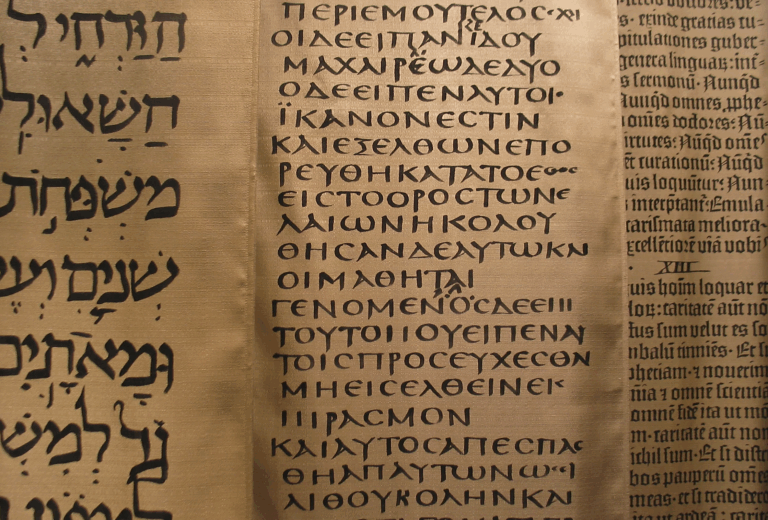 הַזַּרְחִי לְ
הַשָּׁאוּלִ
מִשְׁפְּחֹת
שְׁנַיִם וְעֶ
וּמָאתָיִם
גָד לְמִשְׁ
ΠΕΡΙΕΜΟΥΤΕΛΟϹ·ΧΙ
ΟΙΔΕΕΙΠΑΝΙΔΟΥ
ΜΑΧΑΙΡΕΩΔΕΔΥΟ
ΟΔΕΕΙΠΕΝΑΥΤΟΙ·
ΪΚΑΝΟΝΕϹΤΙΝ
ΚΑΙΕΞΕΛΘΩΝΕΠΟ
ΡΕΥΘΗΚΑΤΑΤΟΕ
ΕΙϹΤΟΟΡΟϹΤΩΝΕ
ΛΑΙΩΝΗΚΟΛΟΥ
ΘΗϹΑΝΔΕΑΥΤΩΚΑΙ
ΟΙΜΑΘΗΤΑΙ
ΓΕΝΟΜΕΝΟϹΔΕΕΠΙ
ΤΟΥΤΟΠΟΥΕΙΠΕΝΑΥ
ΤΟΙϹΠΡΟϹΕΥΧΕϹΘΑΙ
ΜΗΕΙϹΕΛΘΕΙΝΕΙϹ
ΠΙΡΑϹΜΟΝ
ΚΑΙΑΥΤΟϹΑΠΕϹΠΑϹ
ΘΗΑΠΑΥΤΩΝΩ
ΛΙΘΟΥΒΟΛΗΝΚΑΙ
s· exinde gratias cu-
pitulationes guber-
genera linguaꝝ: int̄-
s sermonū· Nunqd
Nunqd omnes ꝓphe-
omēs doctores: Nū-
irtutes: Nūqd omēs
ēt curationū: Nūqd
uis loquūtur: Nun-
interp̄tant: Emula-
carismata meliora·
xcellētiorē viā vobis
XIII
uis hoīm loquar et
loꝝ: caritatē aūt nō
tus sum velut es so
mbalū tinniēs· Et si
phetiam· ⁊ nouerim
nia ⁊ omnē scientiā
omnē fidē ita ut mō
m· caritatē aūt non
ichil sum· Et si distr
bos paupeꝝ omēs
meas· et si tradidero